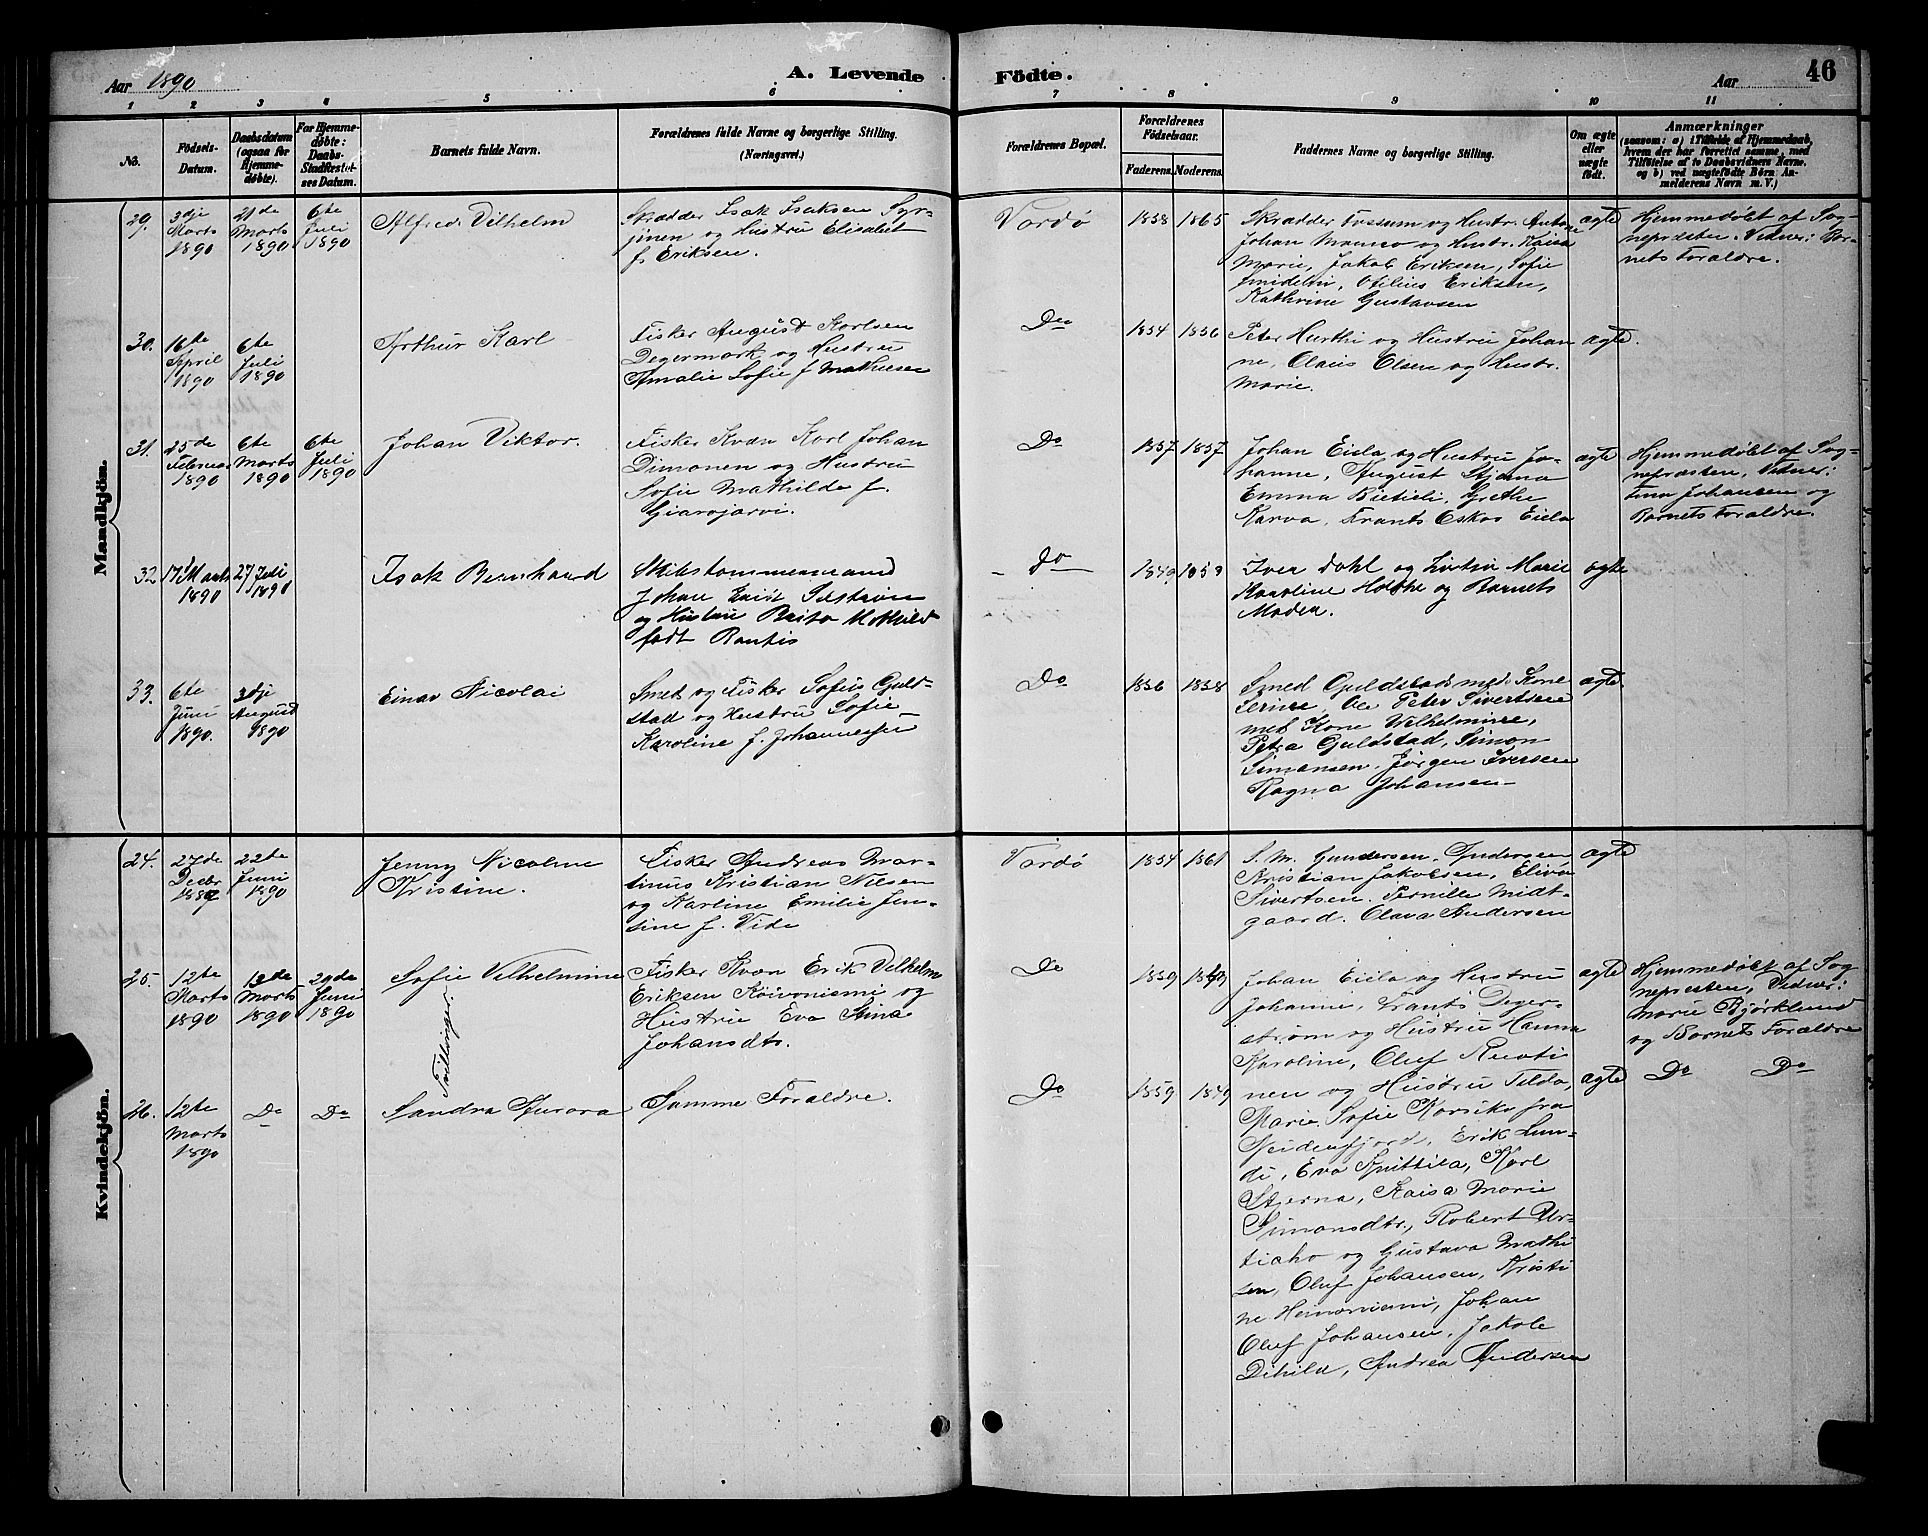 Aar 1890
A. Levende Födte.
Aar
46
1 2 3 4 5 6 7 8 9 10 11
No.
Födsels-
Datum.
Daabsdatum
(ogsaa for
Hjemme-
döbte).
For Hjemme-
døbte:
Daabs-
Stadfæstel-
ses Datum.
Barnets fulde Navn.
Forældrenes fulde Navne og borgerlige Stilling.
(Næringsvei.)
Forældrenes Bopæl.
Forældrenes
Födselsaar.
Faderens. Moderens.
Faddernes Navne og borgerlige Stilling.
Om ægte
eller
uægte
født.
Anmærkninger
(saasom: a) i Tilfælde af Hjemmedaab,
hvem der har forrettet samme, med
Tilföielse af to Daabsvidners Navne.
og b) ved uægtefödte Börn An-
melderens Navn m. V.)
Mandkjön.
29.
3dje
Marts
1890
21de
Marts
1890
6te
Juli
1890
Alfred Vilhelm
Skrædder Isak Isaksen Syr-
jinen og Hustru Elisabet
f. Eriksen.
Vardø
1858 1865
Skrædder Fossum og Hustr.
Johan og Hustr. Kaisa
Marie, Jakob Eriksen, Sofie
Otilius Eriksen,
Kathrine Gustavsen
ægte
Hjemmedøbt af Sog-
nepræsten. Vidner: Bar-
nets Forældre.
30.
16te
April
1890
6te
Juli
1890
Arthur Karl
Fisker August Karlsen
Degermark og Hustru
Amalie Sofie f. Mathisen
Do
1854 1856
Peter Hurthi og Hustru Johan
ne, Olaus Olsen og Hustr.
Marie.
ægte.
31.
25de
Februar
1890
6te
Marts
1890
6te
Juli
1890
Johan Viktor.
Fisker Kvæn Karl Johan
Dimonen og Hustru
Sofie Mathilde f.
Giarojarvi.
Do
1857 1857
Johan Eiela og Hustru Jo-
hanne, August Stjerna
Emma Grethe
Karva, Frants Oskar Eiela
ægte
Hjemmedøbt af Sog-
nepræsten, Vidner:
Johansen og
Barnets Forældre.
32
17 Marts
1890
27 Juli
1890
Isak Bernhard
Skibstømmermand
Johan Erik
og Hustru Brita Mathild
født Rantis
Do
1849 1859
Iver Dahl og Hustru Marie
Karoline og Barnets
Moder.
ægte
33.
6te
Juni
1890.
3dje
August
1890
Einar Nicolai
Smed og Fisker Sofus Guld-
stad og Hustru Sofie
Karoline f. Johannesen
Do
1856 1858
Smed Guldstad med Kone
Serine, Ole Peter Sivertsen
med Kone Vilhelmine,
Petra Guldstad, Simon
Simonsen, Jørgen Iversen
Ragna Johansen
ægte
Kvindekjön.
24.
27de
Decbr
1889
22de
Juni
1890
Jenny Nicoline
Kristine.
Fisker Andreas Mar-
tinus Kristian Nilsen
og Karline Emilie Jen-
sine f. Vide
Vardø
1854 1861
S. M. Gundersen, Andersen
Kristian Jakobsen, Elina
Sivertsen. Pernille Midt-
gaard. Olava Andersen
ægte
25.
12te
Marts
1890
13de
Marts
1890
29de
Juni
1890
Sofie Vilhelmine
Tvillinger.
Fisker Kvæn Erik Vilhelm
Eriksen Koivoniemi og
Hustru Eva Stina
Johansdtr.
Do
1859 1849
Johan Eiela og Hustru
Johanne, Frants Deger-
strøm og Hustru Hanna
Karoline, Oluf Ruoti
nen og Hustru Tilda,
Marie Sofie Korsika fra
Erik Lun-
di, Eva Knittila, Karl
Stjerna, Kaisa Marie
Simonsdtr., Robert Ur-
tiaho og Gustava Mathi
sen, Oluf Johansen, Kristi
ne Heinoniemi, Johan
Oluf Johansen, Jakob
Dihila, Andrea Andersen
ægte
Hjemmedøbt af Sog
nepræsten, Vidner:
Marie Bjørklund
og Barnets Forældre
26.
12te
Marts
1890
Do Do
Sandra Aurora
Samme Forældre.
Do
1859 1849
ægte
Do Do